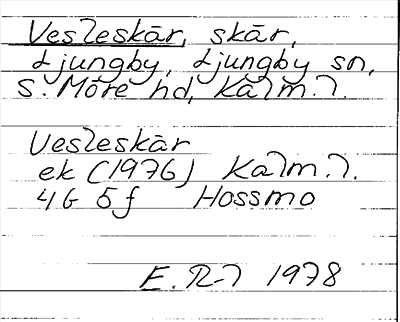 Vesleskär, skär,
Ljungby, Ljungby sn,
S. Möre hd, Kalm. l.
Vesleskär
ek (1976) Kalm. l.
4G 5f Hossmo
E. R-l 1978